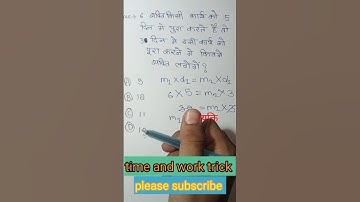 6 व्यक्ति किसी कार्य को 5
दिन में पूरा करते है तो
3 दिन में उसी कार्य को
पूरा करने में कितने
व्यक्ति लगेंगे?
A 9 m₁×d₁ = m₂×d₂
B 18 6×5 = m₂×3
C 11
D
time and work trick
please subscribe